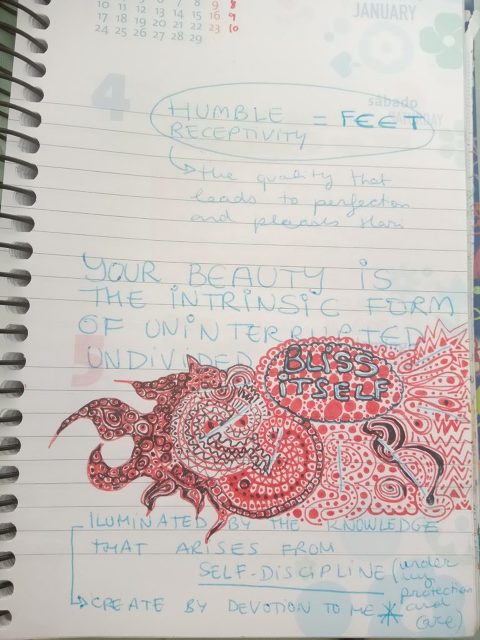 10 11 12 13 14 15 16 9
17 18 19 20 21 22 23 10
24 25 26 27 28 29
JANUARY
4
sábado
HUMBLE = FEET
RECEPTIVITY
the quality that
leads to perfection
and pleases Hari
YOUR BEAUTY iS
THE iNTRiNSiC FORM
OF UNiNTERRUPTED
UNDiViDED
BLiSS
iTSELF
5
ILUMINATED BY THE KNOWLEDGE
THAT ARISES FROM
SELF-DISCIPLINE (under
my
protection
and
care)
CREATE BY DEVOTION TO ME *